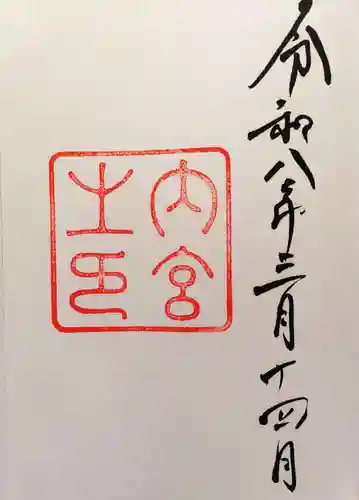 令和八年三月十四日
内宮
之印